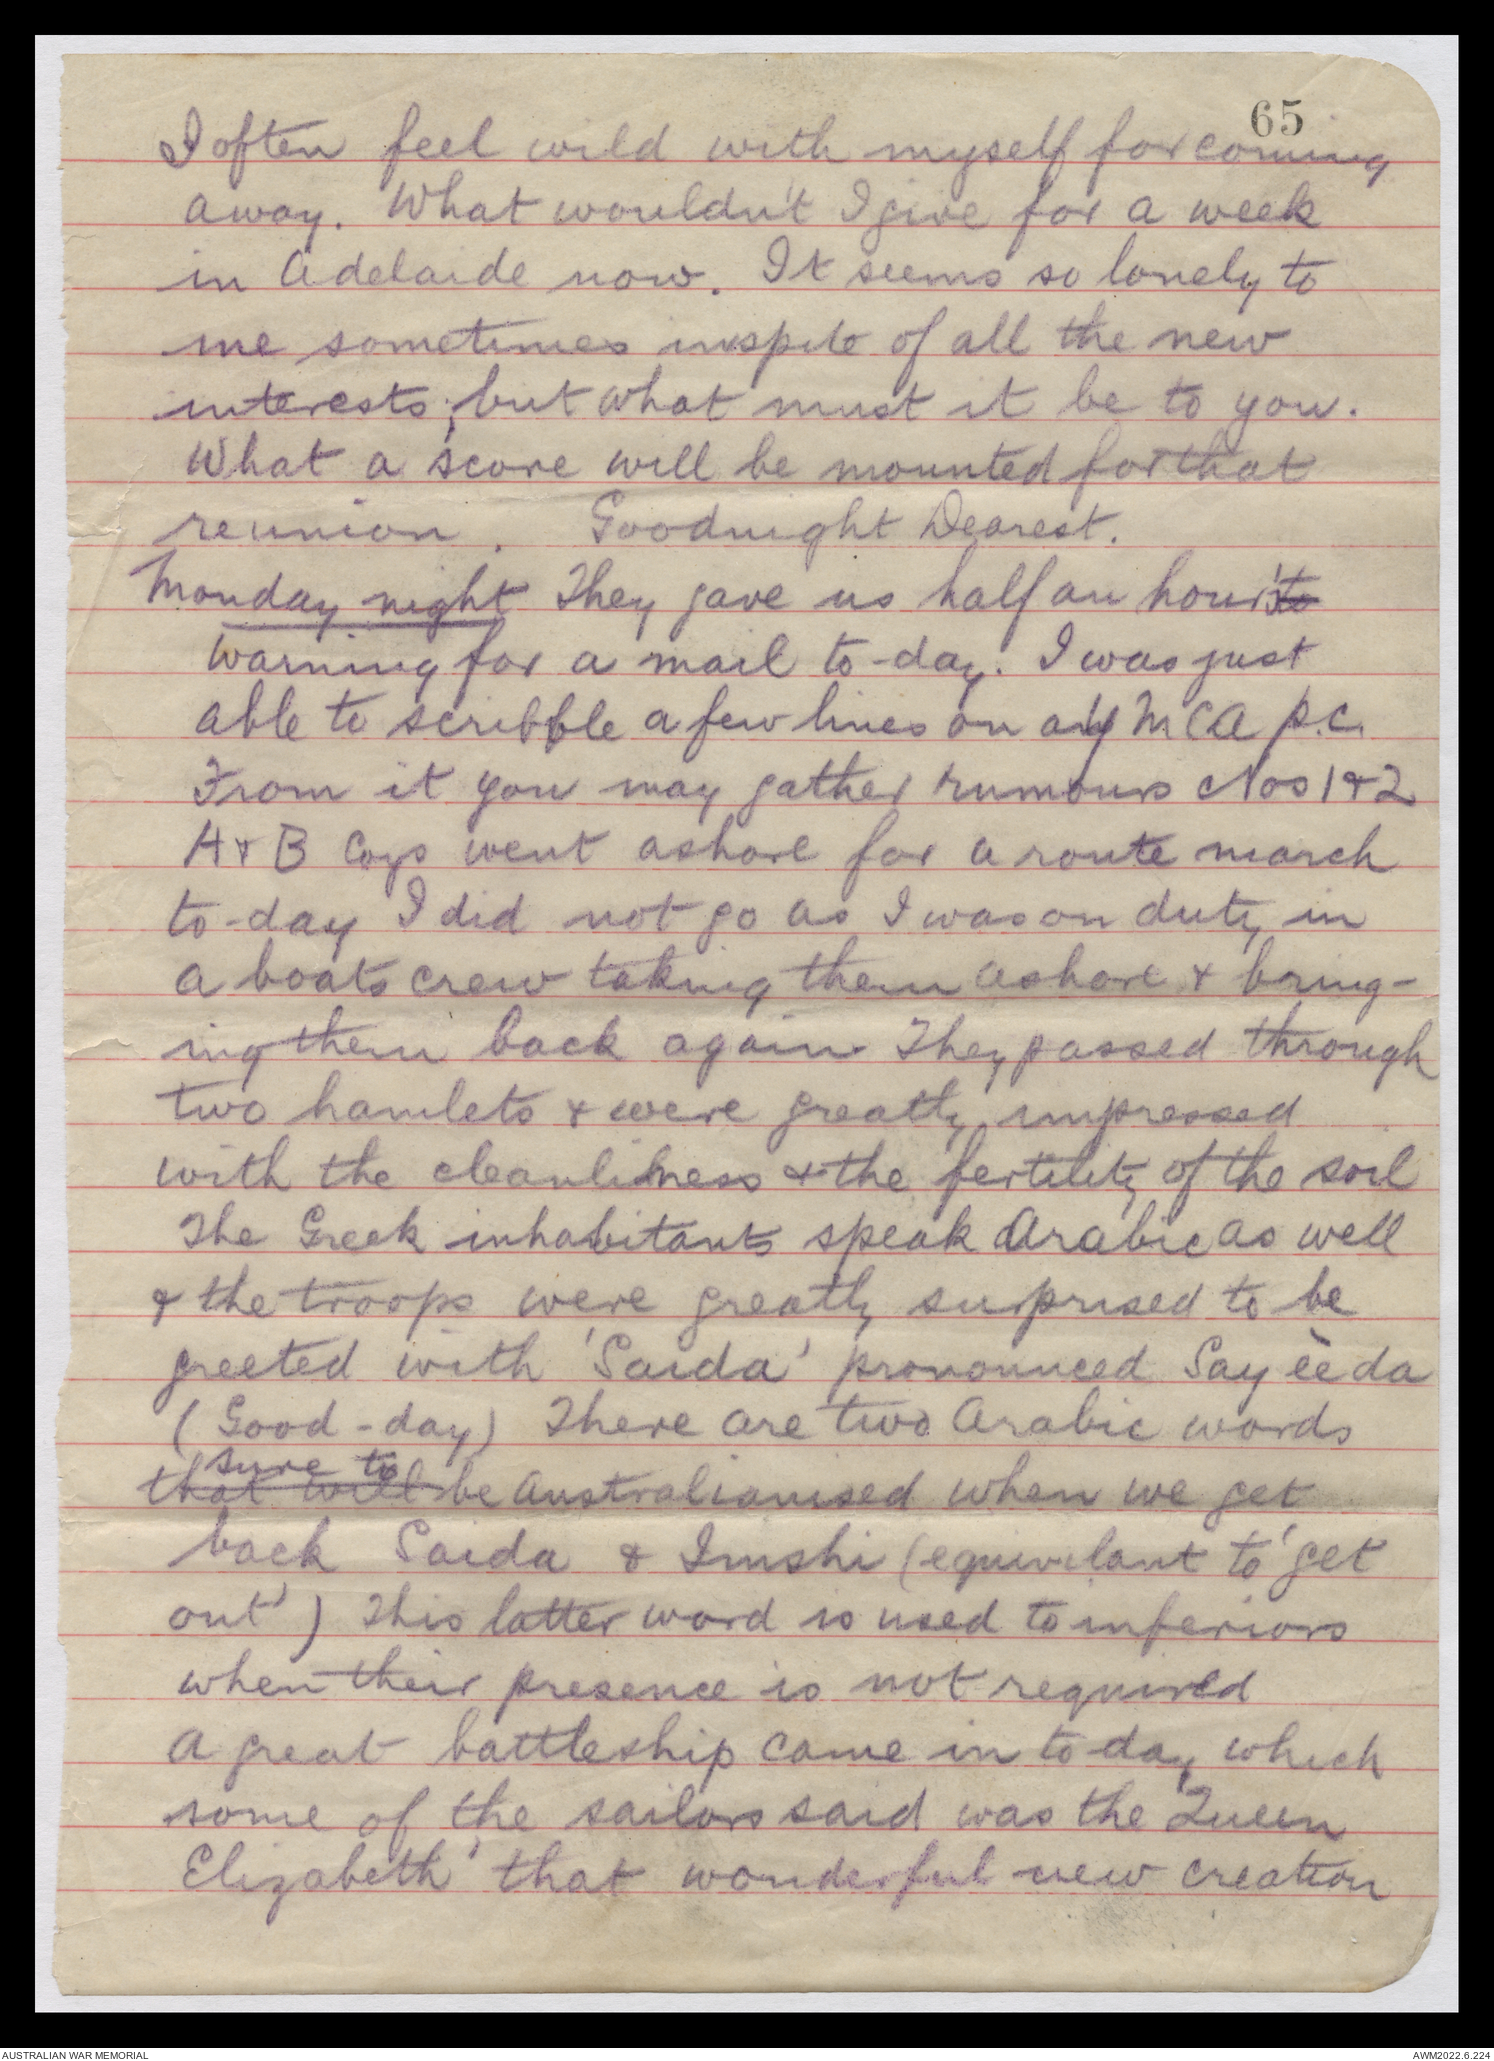 65
I often feel wild with myself for coming
away. What wouldn't I give for a week
in Adelaide now. It seems so lonely to
me sometimes inspite of all the new
interests; but what must it be to you.
What a score will be mounted for that
reunion. Goodnight Dearest.
Monday night They gave us half an hour's to
warning for a mail to-day. I was just
able to scribble a few lines on a Y M C A p.c.
From it you may gather rumours Nos 1 & 2
A & B Coys went ashore for a route march
to-day I did not go as I was on duty in
a boats crew taking them ashore & bring-
ing them back again They passed through
two hamlets & were greatly impressed
with the cleanliness & the fertility of the soil
The Greek inhabitants speak Arabic as well
& the troops were greatly surprised to be
greeted with 'Saida' pronounced Say èè da
(Good-day) There are two Arabic words
sure to
that will be Australianised when we get
back Saida & Imshi (equivilant to 'get
out') This latter word is used to inferiors
when their presence is not required
A great battleship came in to-day which
some of the sailors said was the 'Queen
Elizabeth' that wonderful new creation
AUSTRALIAN WAR MEMORIAL
AWM2022.6.224